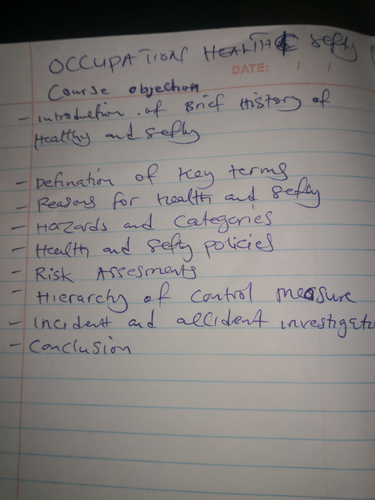 OCCUPATION HEALTH & Sefty
DATE: / /
Course objection
- Introduction of Brief History of
Healthy and sefly
- Defination of key terms
- Reasons for health and sefly
- Hazards and Categories
- Health and Sefty policies
- Risk Assesments
- Hierarchy of control measure
- incident and accident investigati
- Conclusion